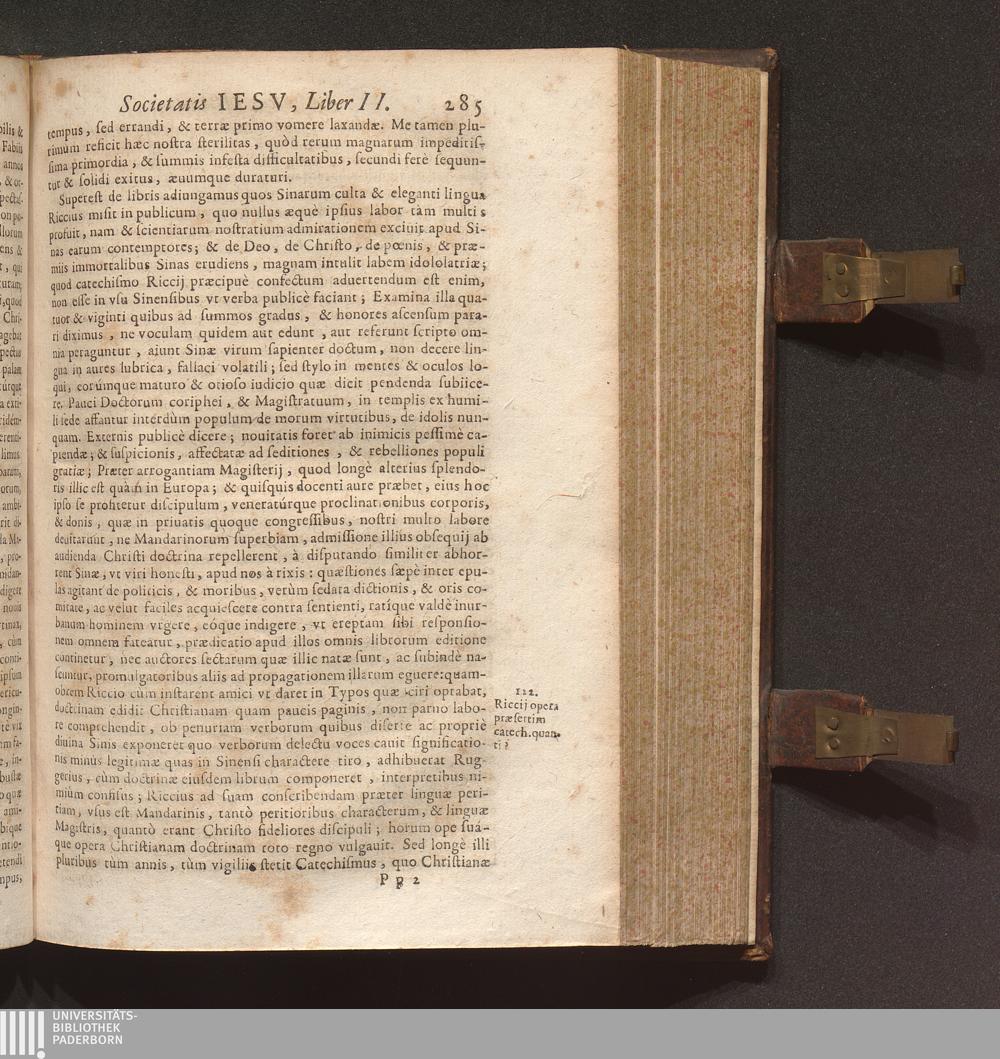 Societatis IESV, Liber II. 285
tempus, sed errandi, & terræ primo vomere laxandæ. Me tamen plu-
rimùm reficit hæc nostra sterilitas, quòd rerum magnarum impeditis-
sima primordia, & summis infesta difficultatibus, secundi ferè sequun-
tur & solidi exitus, æuumque duraturi.
Superest de libris adiungamus quos Sinarum culta & eleganti lingua
Riccius misit in publicum, quo nullus æquè ipsius labor tàm multis
profuit, nam & scientiarum nostratium admirationem exciuit apud Si-
nas earum contemptores; & de Deo, de Christo, de pœnis, & præ-
miis immortalibus Sinas erudiens, magnam intulit labem idololatriæ;
quod catechismo Riccij præcipuè confectum aduertendum est enim,
non esse in vsu Sinensibus vt verba publicè faciant; Examina illa qua-
tuor & viginti quibus ad summos gradus, & honores ascensum para-
ri diximus, ne voculam quidem aut edunt, aut referunt scripto om-
nia peraguntur, aiunt Sinæ virum sapienter doctum, non decere lin-
gua in aures lubrica, fallaci volatili; sed stylo in mentes & oculos lo-
qui, eorúmque maturo & otioso iudicio quæ dicit pendenda subiice-
re. Pauci Doctorum coriphei, & Magistratuum, in templis ex humi-
li sede affantur interdùm populum de morum virtutibus, de idolis nun-
quam. Externis publicè dicere; nouitatis foret ab inimicis pessimè ca-
piendæ; & suspicionis, affectatæ ad seditiones, & rebelliones populi
gratiæ; Præter arrogantiam Magisterij, quod longè alterius splendo-
ris illic est quàm in Europa; & quisquis docenti aure præbet, eius hoc
ipso se profitetur discipulum, veneratúrque proclinationibus corporis,
& donis, quæ in priuatis quoque congressibus, nostri multo labore
deuitarunt, ne Mandarinorum superbiam, admissione illius obsequij ab
audienda Christi doctrina repellerent, à disputando similiter abhor-
rent Sinæ, vt viri honesti, apud nos à rixis: quæstiones sæpè inter epu-
las agitant de politicis, & moribus, verùm sedata dictionis, & oris co-
mitate, ac velut faciles acquiescere contra sentienti, ratíque valdè inur-
banum hominem vrgere, eóque indigere, vt ereptam sibi responsio-
nem omnem fateatur, prædicatio apud illos omnis librorum editione
continetur, nec auctores sectarum quæ illic natæ sunt, ac subindè na-
scuntur, promulgatoribus aliis ad propagationem illarum eguere: quam-
obrem Riccio cùm instarent amici vt daret in Typos quæ sciri optabat,
doctrinam edidit Christianam quam paucis paginis, non paruo labo-
re comprehendit, ob penuriam verborum quibus diserte ac propriè
diuina Sinis exponeret quo verborum delectu voces cauit significatio-
nis minùs legitimæ quas in Sinensi charactere tiro, adhibuerat Rug-
gerius, cùm doctrinæ eiusdem librum componeret, interpretibus ni-
miùm confisus; Riccius ad suam conscribendam præter linguæ peri-
tiam, vsus est Mandarinis, tantò peritioribus characterum, & linguæ
Magistris, quantò erant Christo fideliores discipuli; horum ope suá-
que opera Christianam doctrinam toto regno vulgauit. Sed longè illi
pluribus tùm annis, tùm vigiliis stetit Catechismus, quo Christianæ
Pp 2
122.
Riccij opera
præsertim
catech. quan-
ti?
UNIVERSITÄTS-
BIBLIOTHEK
PADERBORN